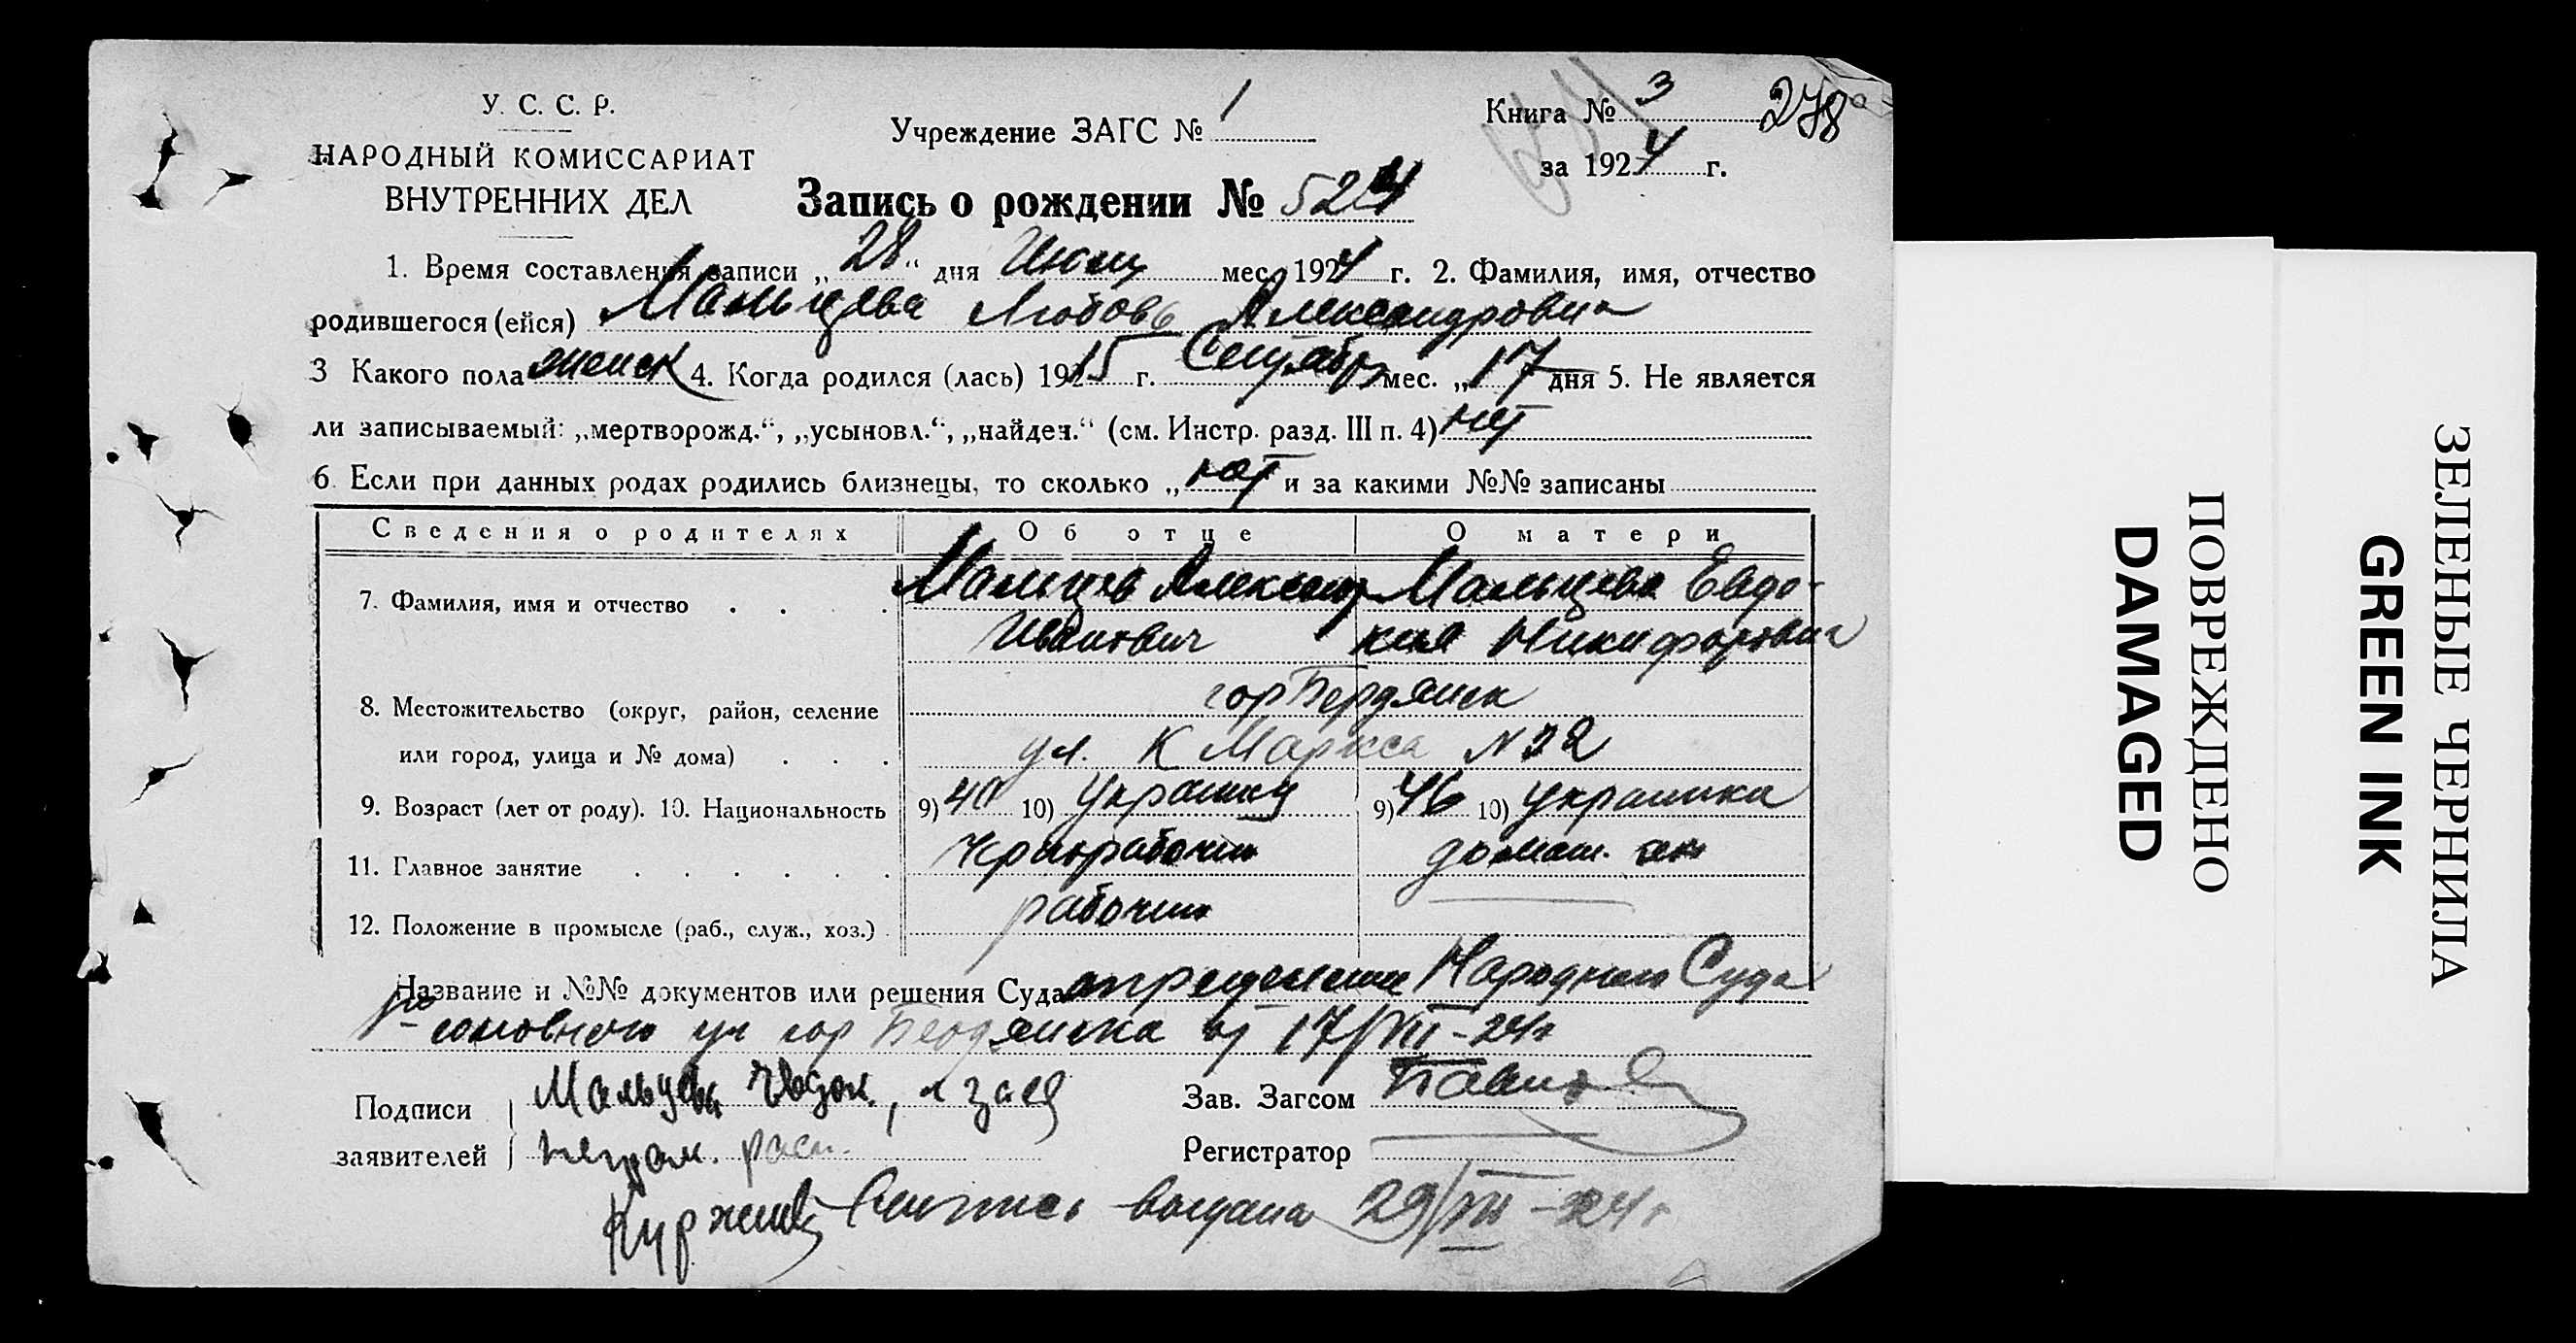 У. С. С. Р.
НАРОДНЫЙ КОМИССАРИАТ
ВНУТРЕННИХ ДЕЛ
Учреждение ЗАГС № 1
Книга № 3 278
за 1924 г.
Запись о рождении № 524
1. Время составления записи „28“ дня мес. 1924 г. 2. Фамилия, имя, отчество
родившегося (ейся) Мальцева Любовь Александровна
3 Какого пола женск 4. Когда родился (лась) 1915 г. Сентябрь мес. „17 дня 5. Не является
ли записываемый: „мертворожд.“, „усыновл.“, „найден.“ (см. Инстр. разд. III п. 4) нет
6. Если при данных родах родились близнецы, то сколько „ нет и за какими №№ записаны
Сведения о родителях Об отце О матери
7. Фамилия, имя и отчество Мальцев Александр Мальцева Евдо-
Иванович кия Никифоровна
8. Местожительство (округ, район, селение гор Бердянск
или город, улица и № дома) ул. К Маркса N 22
9. Возраст (лет от роду). 10. Национальность 9) 40 10) Украинец 9) 46 10) украинка
11. Главное занятие Чернорабочий домаш. хоз
12. Положение в промысле (раб., служ., хоз.) рабочий
Название и №№ документов или решения Суда определение Народного Суда
гор Бердянска от 17/VII-24г
Подписи Мальцева Евдок., а за её
заявителей неграм. расп.
Зав. Загсом
Регистратор
выдана 29/VII-24г
ПОВРЕЖДЕНО
DAMAGED
ЗЕЛЕНЫЕ ЧЕРНИЛА
GREEN INK